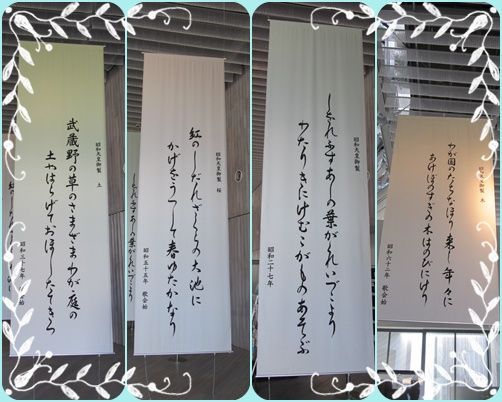 昭和天皇御製 土
武蔵野の草のさまざまわが庭の
土やはらげておほしたてきつ
昭和三十七年 歌会始
昭和天皇御製 桜
紅のしだれざくらの大池に
かげをうつして春ゆたかなり
昭和五十五年 歌会始
昭和天皇御製
しをれふすあしの葉がくれいづこより
わたりきにけむこがものあそぶ
昭和二十七年
昭和天皇御製 木
わが国のたちなほり来し年々に
あけぼのすぎの木はのびにけり
昭和六十二年 歌会始